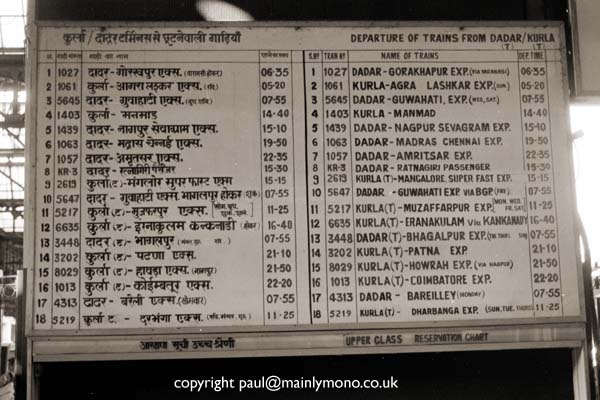 कुर्ला/दादर टर्मिनस से छूटनेवाली गाड़ियाँ DEPARTURE OF TRAINS FROM DADAR/KURLA
(T) (T)
S.Nº TRAIN Nº NAME OF TRAINS DEP.TIME
1 1027 दादर-गोरखपुर एक्स. 06-35 1 1027 DADAR-GORAKHAPUR EXP. (VIA VARANASI) 06-35
2 1061 कुर्ला-आगरा लश्कर एक्स. 05-20 2 1061 KURLA-AGRA LASHKAR EXP. (SUN) 05-20
3 5645 दादर-गुवाहाटी एक्स. 07-55 3 5645 DADAR-GUWAHATI. EXP. (WED, SAT) 07-55
4 1403 कुर्ला-मनमाड 14-40 4 1403 KURLA-MANMAD 14-40
5 1439 दादर-नागपुर सेवाग्राम एक्स. 15-10 5 1439 DADAR-NAGPUR SEVAGRAM EXP. 15-10
6 1063 दादर-मद्रास चेन्नई एक्स. 19-50 6 1063 DADAR-MADRAS CHENNAI EXP. 19-50
7 1057 दादर-अमृतसर एक्स. 22-35 7 1057 DADAR-AMRITSAR EXP. 22-35
8 KR-3 दादर-रत्नागिरी पैसेंजर 15-30 8 KR-3 DADAR-RATNAGIRI PASSENGER 15-30
9 2619 कुर्ला(ट)-मंगलोर सुपर फास्ट एक्स 15-15 9 2619 KURLA(T)-MANGALORE SUPER FAST EXP. 15-15
10 5647 दादर-गुवाहाटी एक्स. भागलपुर होकर 07-55 10 5647 DADAR-GUWAHATI EXP VIA BGP. (FRI) 07-55
11 5217 कुर्ला(ट)-मुजफ्फरपुर एक्स. 11-25 11 5217 KURLA(T)-MUZAFFARPUR EXP. (MON, WED, FR, SAT) 11-25
12 6635 कुर्ला(ट)-इरनाकुलम कन्कनाडी (होकर) 16-40 12 6635 KURLA(T)-ERANAKULAM VIA KANKANADY 16-40
13 3448 दादर-भागलपुर 07-55 13 3448 DADAR(T)-BHAGALPUR EXP. 07-55
14 3202 कुर्ला(ट)-पटणा एक्स. 21-10 14 3202 KURLA(T)-PATNA EXP. 21-10
15 8029 कुर्ला(ट)-हावड़ा एक्स. (नागपुर) 21-50 15 8029 KURLA(T)-HOWRAH EXP. (VIA NAGPUR) 21-50
16 1013 कुर्ला(ट)-कोईम्बतूर एक्स. 22-20 16 1013 KURLA(T)-COIMBATORE EXP. 22-20
17 4313 दादर-बरेली एक्स. (सोमवार) 07-55 17 4313 DADAR-BAREILLEY (MONDAY) 07-55
18 5219 कुर्ला ट.-दरभंगा एक्स. 11-25 18 5219 KURLA(T)-DHARBANGA EXP. (SUN, TUE, THURS) 11-25
आरक्षण सूची उच्च श्रेणी UPPER CLASS RESERVATION CHART
copyright paul@mainlymono.co.uk